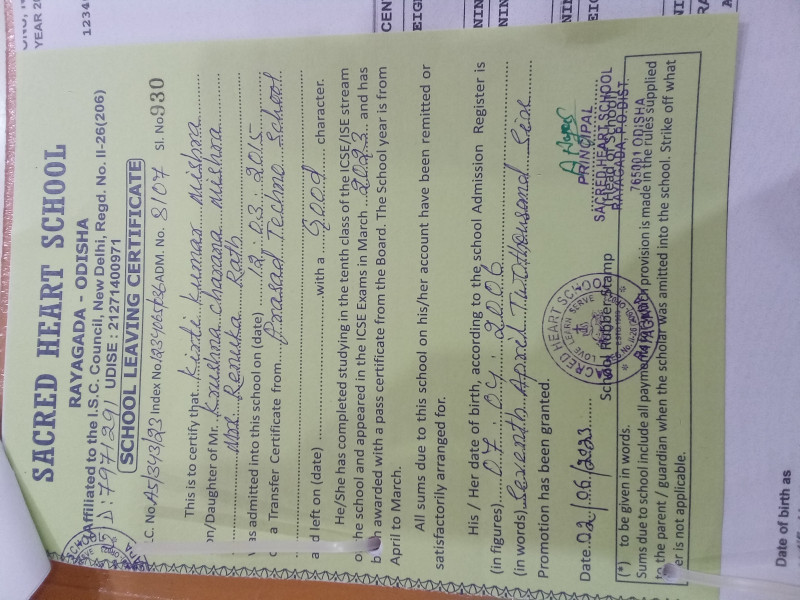 SACRED HEART SCHOOL
RAYAGADA - ODISHA
Affiliated to the I.S.C. Council, New Delhi, Regd. No. II-26(206)
D: 797/291 UDISE : 21271400971
SCHOOL LEAVING CERTIFICATE
.C. No. AS/343/23 Index No. ADM. No. 8107 Sl. No 930
This is to certify that Kirti Kumar Mishra
on/Daughter of Mr. Krushna Charana Mishra
Mrs Renuka Rath
as admitted into this school on (date) 12 : 03 : 2015
a Transfer Certificate from Prasad Techno School
and left on (date) with a Good character.
He/She has completed studying in the tenth class of the ICSE/ISE stream
of the school and appeared in the ICSE Exams in March 2023 and has
been awarded with a pass certificate from the Board. The School year is from
April to March.
All sums due to this school on his/her account have been remitted or
satisfactorily arranged for.
His / Her date of birth, according to the school Admission Register is
(in figures) 07 : 04 : 2006
(in words) Seventh April Two thousand Six
Promotion has been granted.
Date. 02/06/2023
School Rubber Stamp
Head of School
PRINCIPAL
SACRED HEART SCHOOL
RAYAGADA, P.O-DIST.
765001 ODISHA
SACRED HEART SCHOOL
LOVE LEARN SERVE
RAYAGADA
(*) to be given in words.
Sums due to school include all payments provision is made in the rules supplied
to the parent / guardian when the scholar was amitted into the school. Strike off what
er is not applicable.
YEAR 20
1234
CEN
Date of birth as